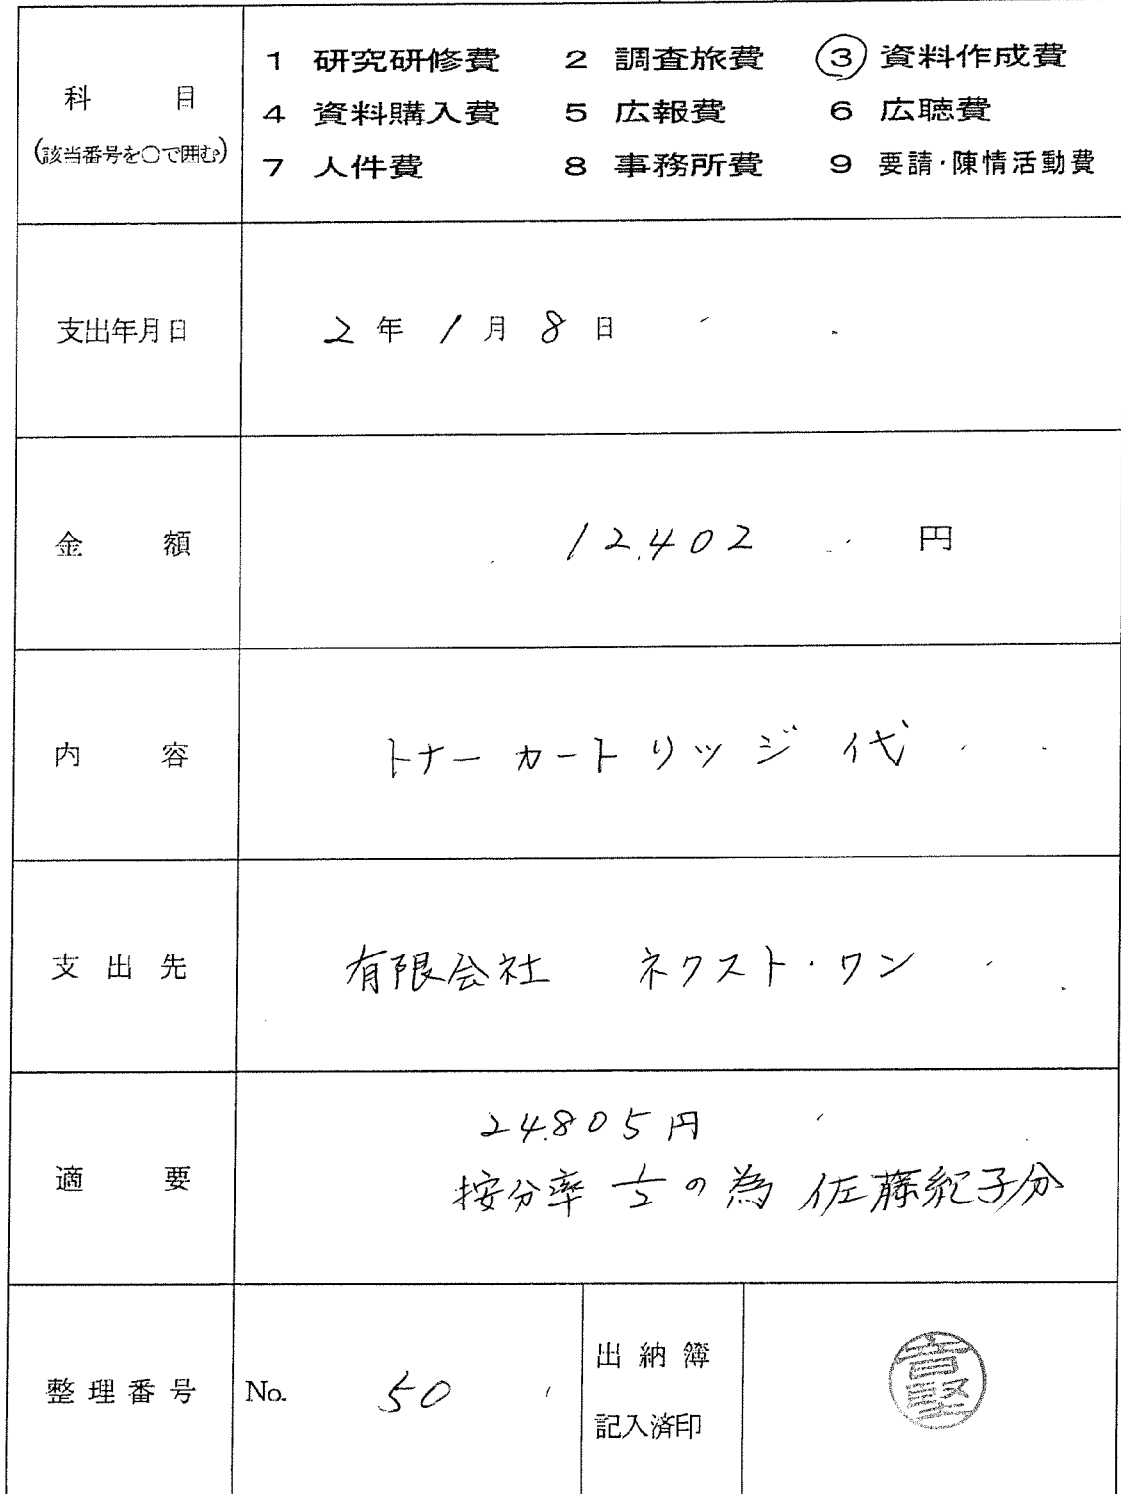 科目
(該当番号を○で囲む)
1 研究研修費 2 調査旅費 ③ 資料作成費
4 資料購入費 5 広報費 6 広聴費
7 人件費 8 事務所費 9 要請・陳情活動費
支出年月日 2年1月8日
金額 12,402 円
内容 トナーカートリッジ代
支出先 有限会社 ネクスト・ワン
適要
24,805円
按分率 1/2 の為 佐藤紀子分
整理番号 No. 50
出納簿
記入済印